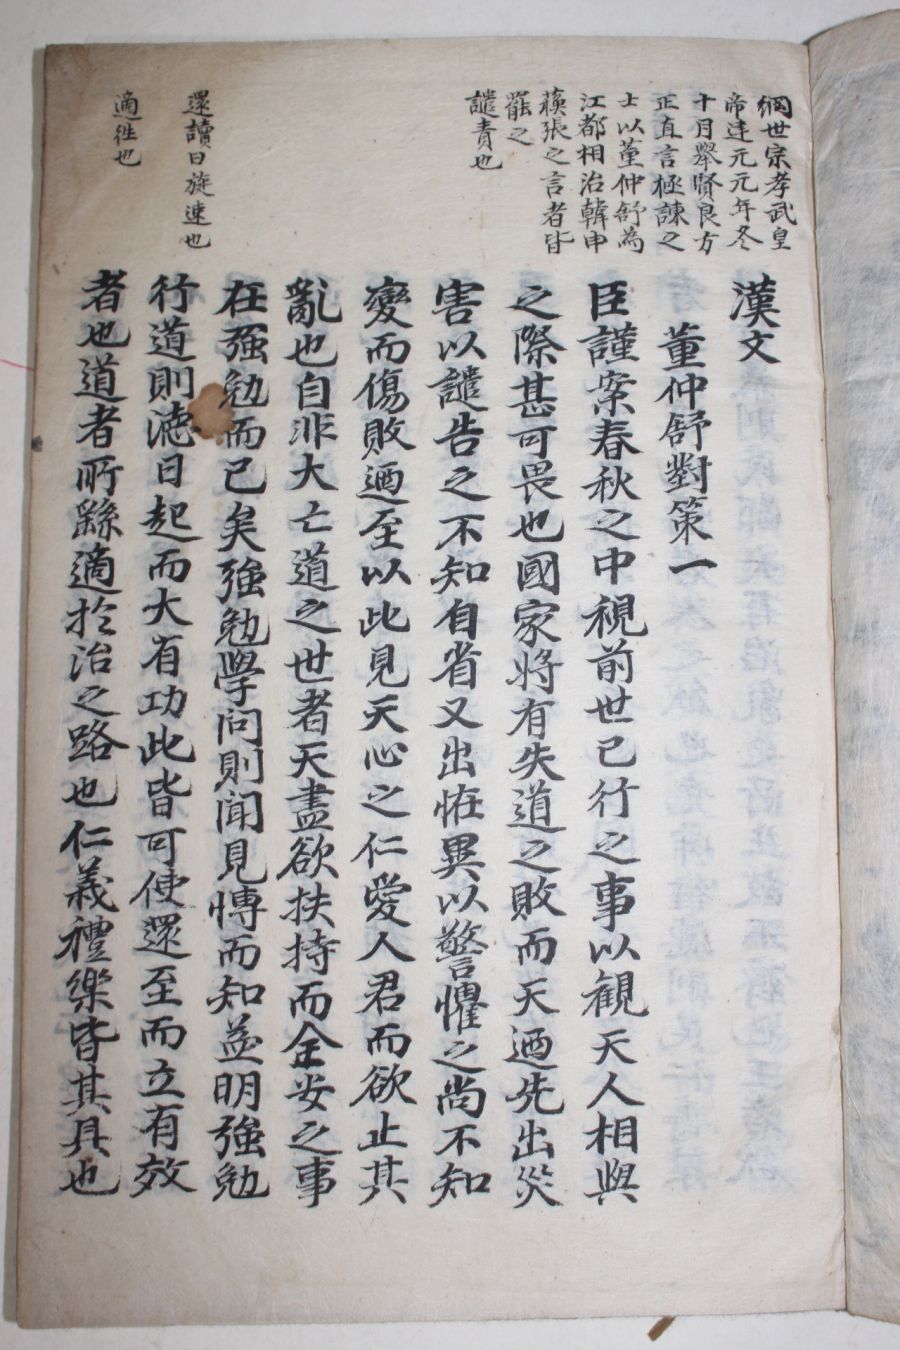 綱世宗孝武皇
帝建元元年冬
十月擧賢良方
正直言極諫之
士以董仲舒為
江都相治韓申
蘇張之言者皆
罷之
譴責也
還讀曰旋速也
適徃也
漢文
董仲舒對策一
臣謹案春秋之中視前世已行之事以觀天人相與
之際甚可畏也國家将有失道之敗而天迺先出災
害以譴告之不知自省又出恠異以警懼之尚不知
變而傷敗迺至以此見天心之仁愛人君而欲止其
亂也自非大亡道之世者天盡欲扶持而全安之事
在强勉而已矣强勉學问則闻見愽而知益明强勉
行道則德日起而大有功此皆可使還至而立有效
者也道者所繇適扵治之路也仁義禮樂皆其具也